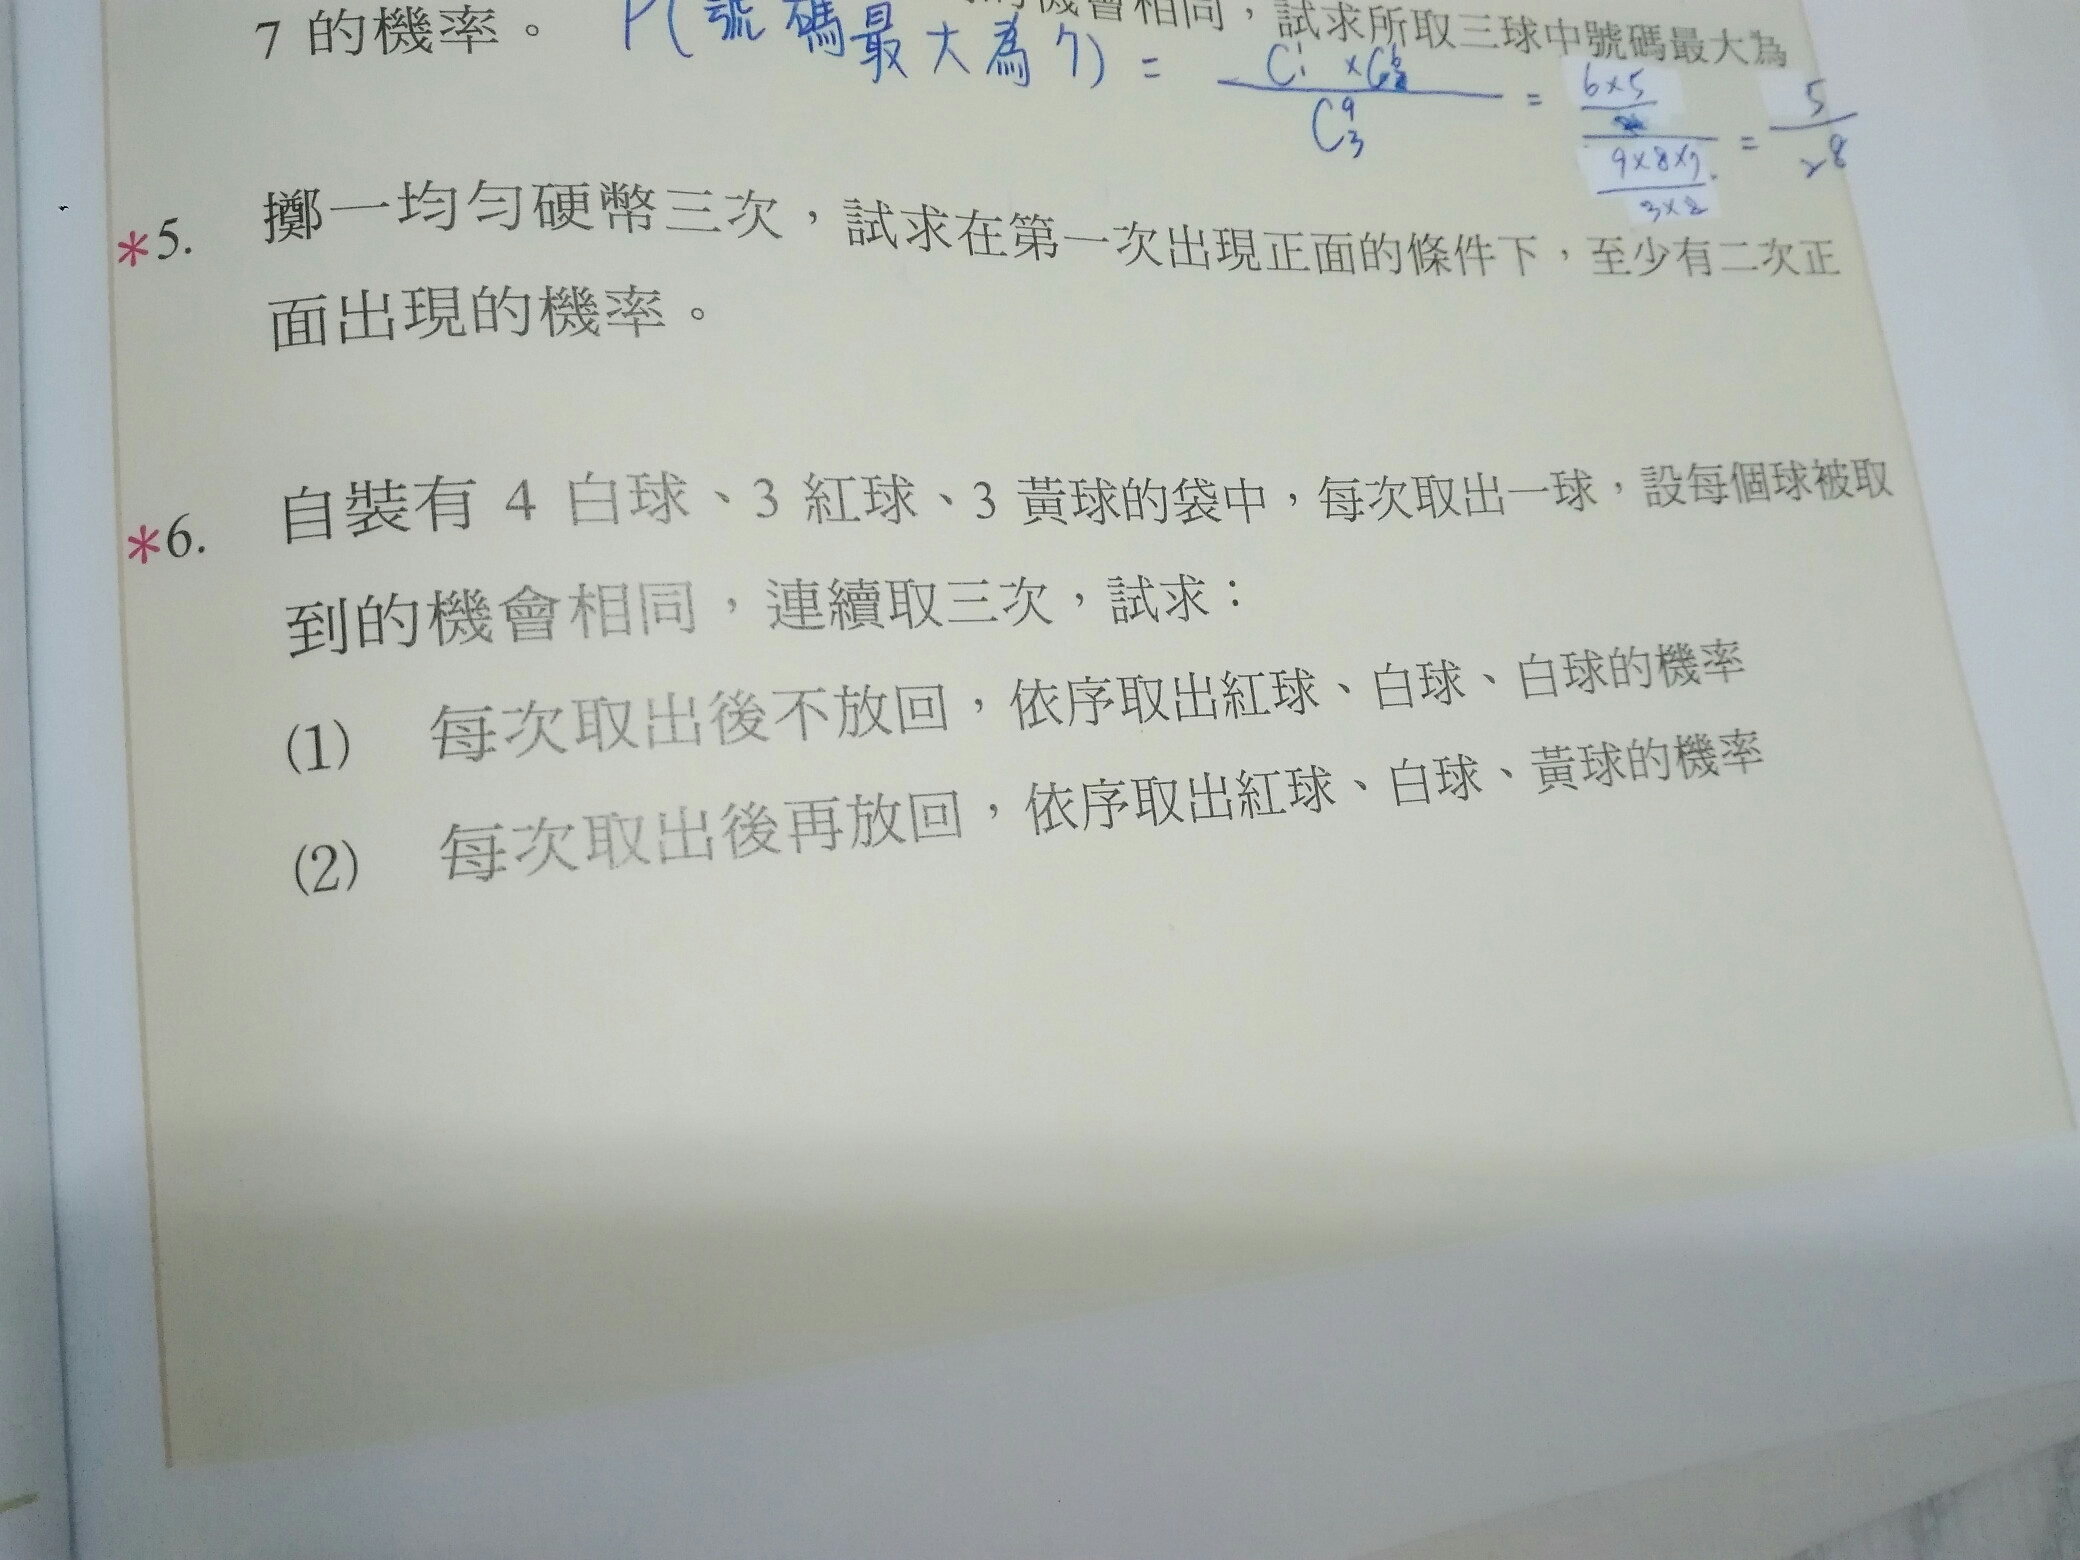 機會相同，試求所取三球中號碼最大為
7 的機率。 P(號碼最大為7) = C¹₁ × C⁶₂ / C⁹₃ = (6×5/2) / (9×8×7/3×2) = 5/28
*5. 擲一均勻硬幣三次，試求在第一次出現正面的條件下，至少有二次正
面出現的機率。
*6. 自裝有 4 白球、3 紅球、3 黃球的袋中，每次取出一球，設每個球被取
到的機會相同，連續取三次，試求：
(1) 每次取出後不放回，依序取出紅球、白球、白球的機率
(2) 每次取出後再放回，依序取出紅球、白球、黃球的機率